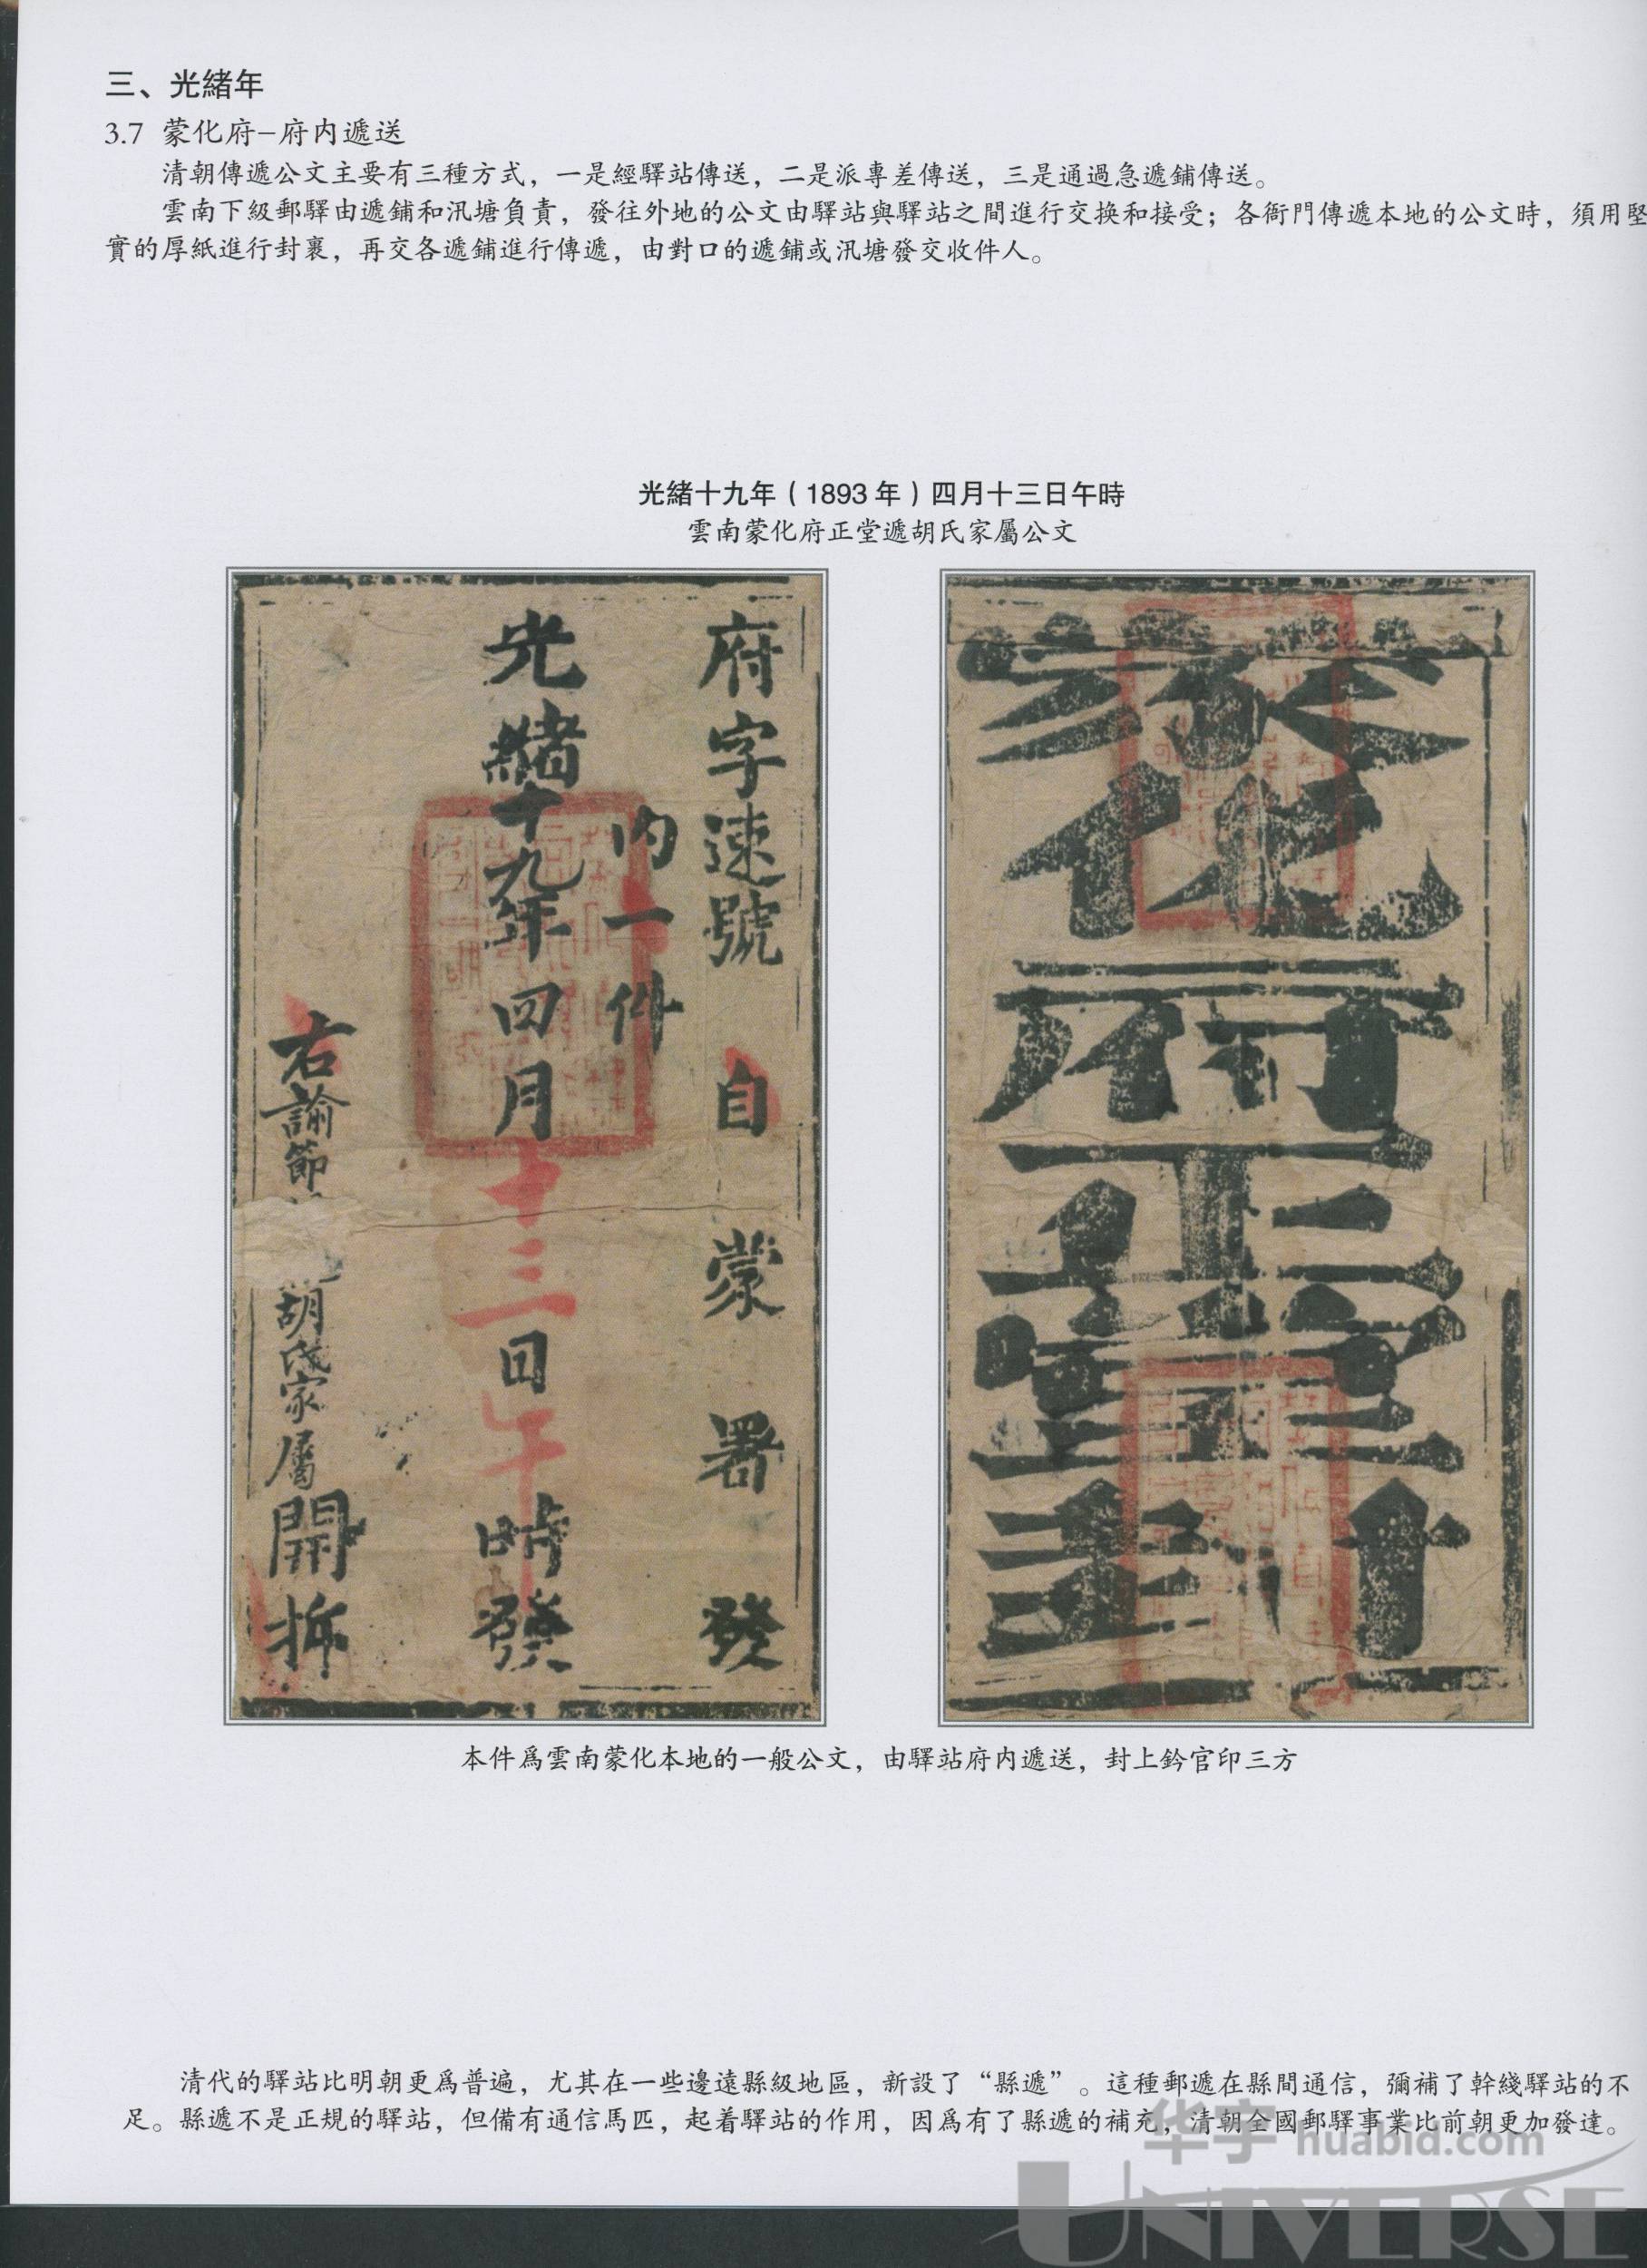 三、光緒年
3.7 蒙化府–府内遞送
清朝傳遞公文主要有三種方式，一是經驛站傳送，二是派專差傳送，三是通過急遞鋪傳送。
雲南下級郵驛由遞鋪和汛塘負責，發往外地的公文由驛站與驛站之間進行交换和接受；各衙門傳遞本地的公文時，須用堅
實的厚紙進行封裹，再交各遞鋪進行傳遞，由對口的遞鋪或汛塘發交收件人。
光緒十九年（1893年）四月十三日午時
雲南蒙化府正堂遞胡氏家屬公文
府字速號 自蒙署發
内一件
光緒十九年四月十三日午時發
右諭節 胡氏家屬開拆
蒙化府正堂封
本件爲雲南蒙化本地的一般公文，由驛站府内遞送，封上鈐官印三方
清代的驛站比明朝更爲普遍，尤其在一些邊遠縣級地區，新設了“縣遞”。這種郵遞在縣間通信，彌補了幹綫驛站的不
足。縣遞不是正規的驛站，但備有通信馬匹，起着驛站的作用，因爲有了縣遞的補充，清朝全國郵驛事業比前朝更加發達。
华宇 huabid.com
UNIVERSE